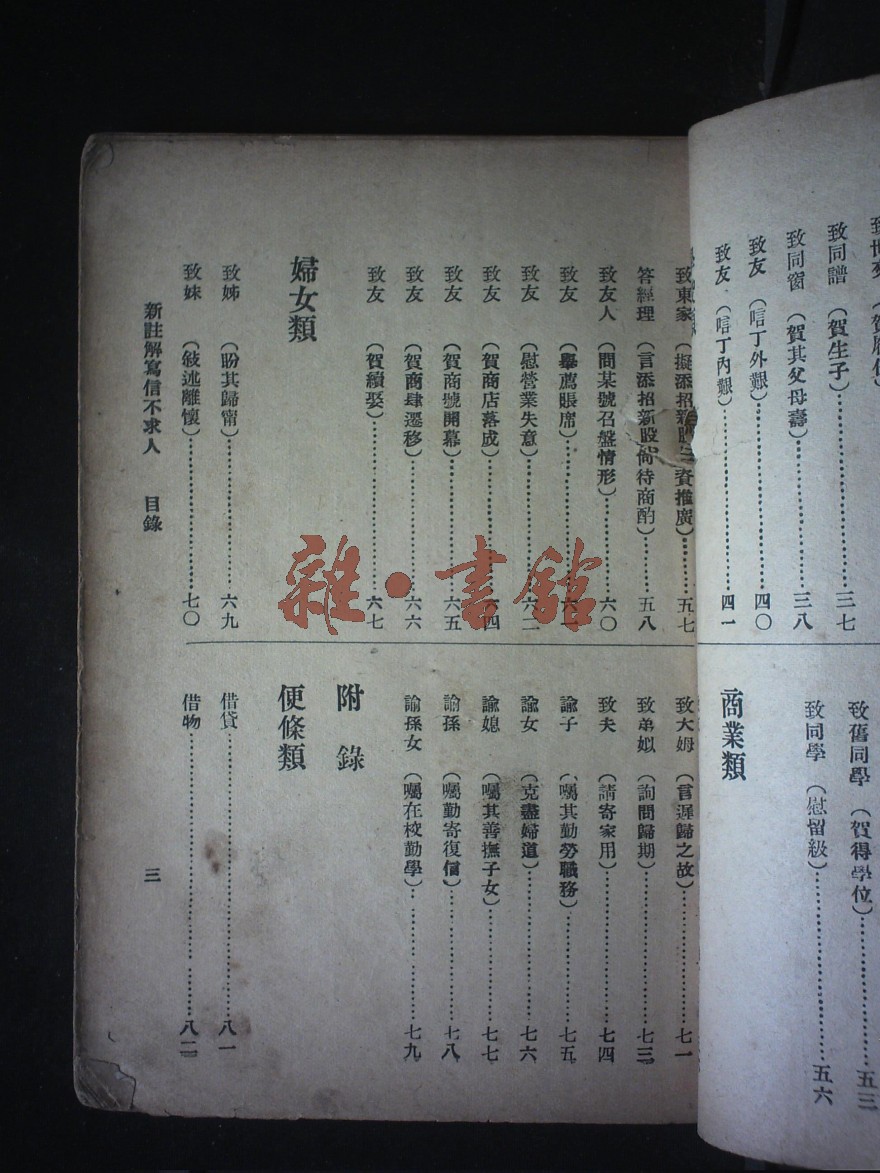 致同譜 (賀生子) 三七
致同窗 (賀其父母壽) 三八
致友 (唁丁外艱) 四〇
致友 (唁丁內艱) 四一
致舊同學 (賀得學位) 五三
致同學 (慰留級) 五六
商業類
致東家 五七
答經理 (言添招新股尙待商酌) 五八
致友人 (問某號召盤情形) 六〇
致友 (舉薦賬席) 六一
致友 (慰營業失意) 六二
致友 (賀商店落成) 六四
致友 (賀商號開幕) 六五
致友 (賀商肆遷移) 六六
致友 (賀續娶) 六七
婦女類
致姊 (盼其歸甯) 六九
致妹 (敍述離懷) 七〇
致大姆 (言遲歸之故) 七一
致弟姒 (詢問歸期) 七三
致夫 (請寄家用) 七四
諭子 (囑其勤勞職務) 七五
諭女 (克盡婦道) 七六
諭媳 (囑其善撫子女) 七七
諭孫 (囑勤寄復信) 七八
諭孫女 (囑在校勤學) 七九
附錄
便條類
借貸 八一
借物 八二
新註解寫信不求人 目錄 三
雜·書館